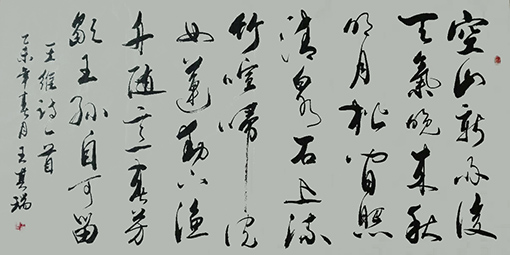 空山新雨後
天氣晚來秋
明月松間照
清泉石上流
竹喧歸浣
女蓮動下漁
舟隨意春芳
歇王孫自可留
王維詩一首
乙未年春月王其瑞